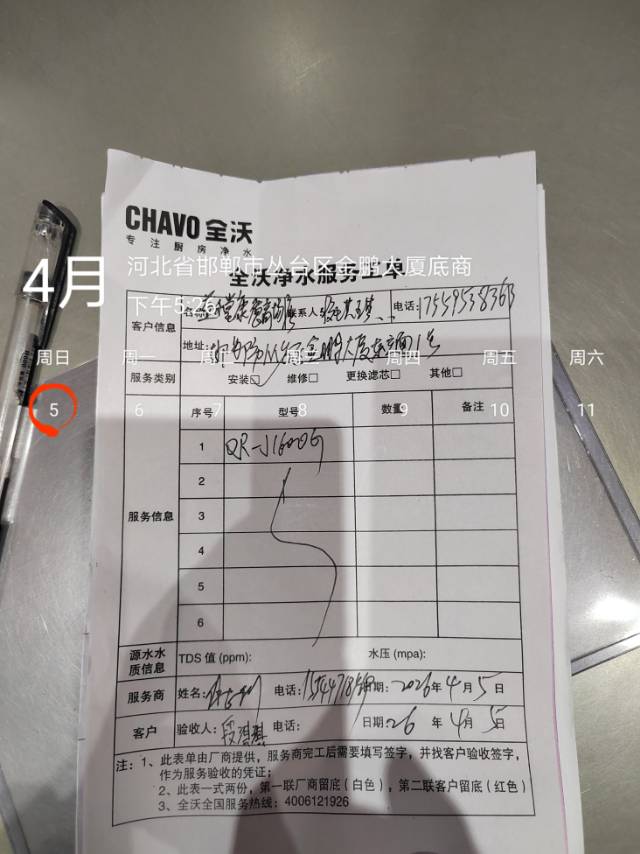 CHAVO 全沃
专注厨房净水
全沃净水服务工单
4月
河北省邯郸市丛台区金鹏大厦底商
下午5:26
客户信息
名称:
联系人:
电话: 17559538368
地址:
服务类别 安装□ 维修□ 更换滤芯□ 其他□
周日 周一 周二 周三 周四 周五 周六
5 6 7 8 9 10 11
服务信息
序号 型号 数量 备注
1 QR-J1600G
2
3
4
5
6
源水水质信息 TDS 值 (ppm): 水压 (mpa):
服务商 姓名: 电话: 日期: 2026年4月5日
客户 验收人: 电话: 日期: 26年4月5日
注: 1、此表单由厂商提供，服务商完工后需要填写签字，并找客户验收签字，
作为服务验收的凭证;
2、此表一式两份，第一联厂商留底（白色），第二联客户留底（红色）
3、全沃全国服务热线: 4006121926